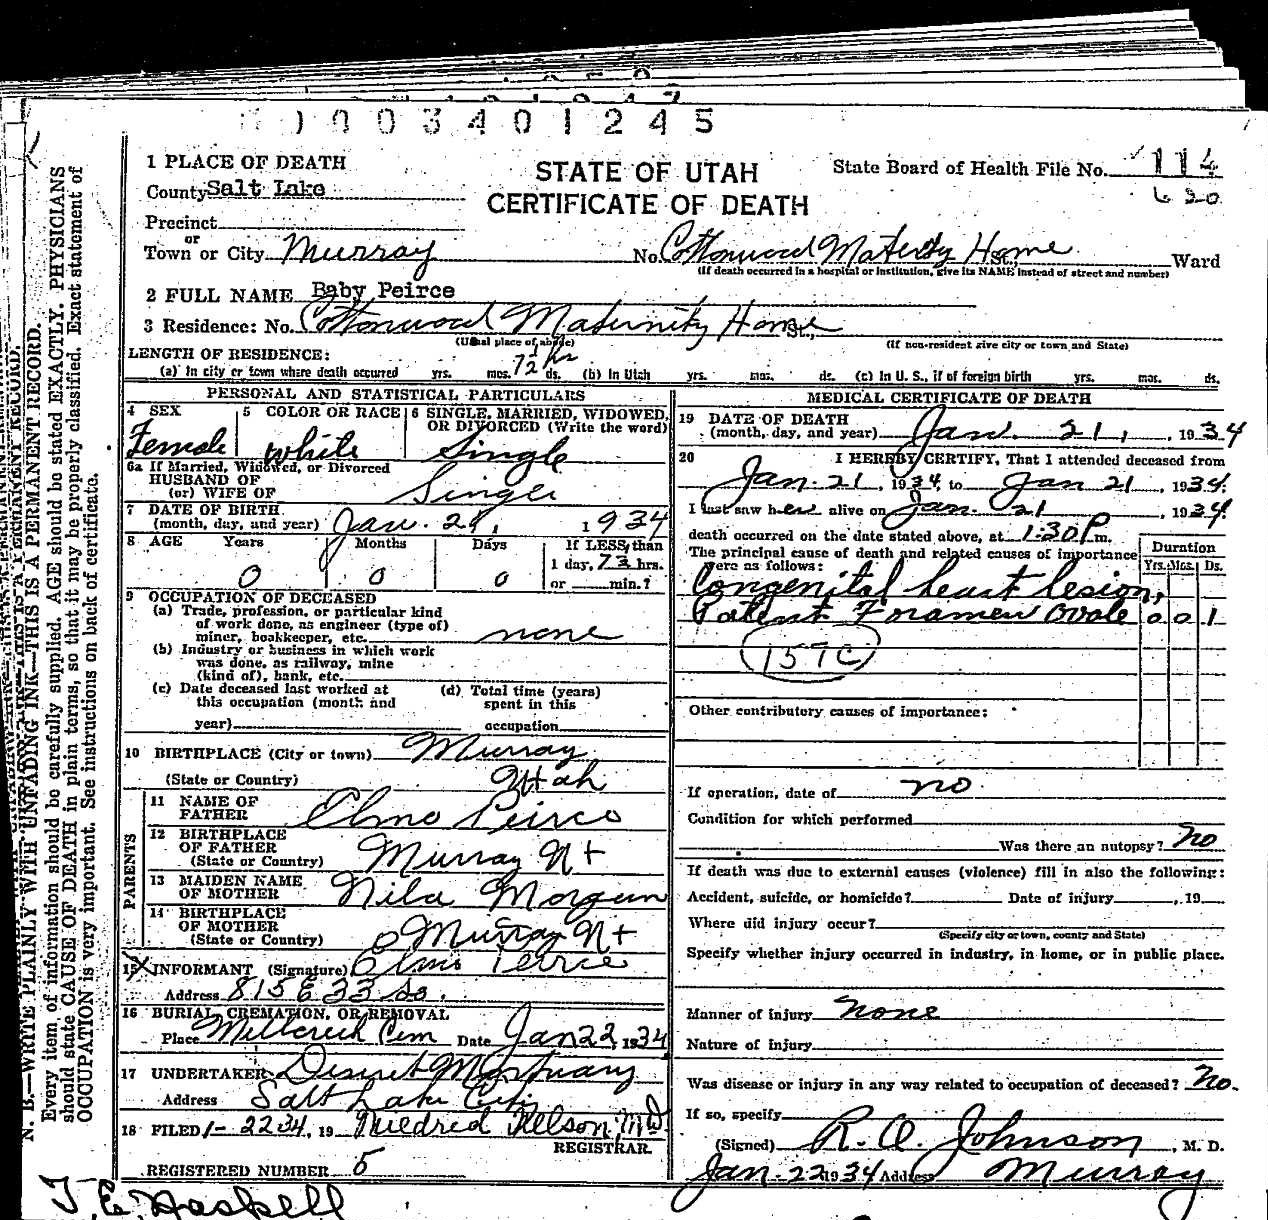 1003401245
1 PLACE OF DEATH
STATE OF UTAH
State Board of Health File No. 114
County Salt Lake
CERTIFICATE OF DEATH
620
Precinct
or
Town or City Murray No. Cottonwood Matertity Home St., Ward
(If death occurred in a hospital or institution, give its NAME instead of street and number)
2 FULL NAME Baby Peirce
3 Residence: No. Cottonwood Maternity Home St.,
(Usual place of abode) (If non-resident give city or town and State)
LENGTH OF RESIDENCE: 72 hrs
(a) In city or town where death occurred yrs. mos. ds. (b) In Utah yrs. mos. ds. (c) In U. S., if of foreign birth yrs. mos. ds.
PERSONAL AND STATISTICAL PARTICULARS
4 SEX Female
5 COLOR OR RACE white
6 SINGLE, MARRIED, WIDOWED, OR DIVORCED (Write the word) Single
6a If Married, Widowed, or Divorced
HUSBAND OF
(or) WIFE OF Single
7 DATE OF BIRTH
(month, day, and year) Jan. 21, 1934
8 AGE Years Months Days If LESS than
0 0 0 1 day, 73 hrs.
or min.?
9 OCCUPATION OF DECEASED
(a) Trade, profession, or particular kind
of work done, as engineer (type of)
miner, bookkeeper, etc. none
(b) Industry or business in which work
was done, as railway, mine
(kind of), bank, etc.
(c) Date deceased last worked at
this occupation (month and
year)
(d) Total time (years)
spent in this
occupation
10 BIRTHPLACE (City or town) Murray
(State or Country) Utah
PARENTS
11 NAME OF
FATHER Elmo Peirce
12 BIRTHPLACE
OF FATHER
(State or Country) Murray Ut
13 MAIDEN NAME
OF MOTHER Nila Morgan
14 BIRTHPLACE
OF MOTHER
(State or Country) Murray Ut
15 INFORMANT (Signature) Elmo Peirce
Address 815 E 33 So.
16 BURIAL, CREMATION, OR REMOVAL
Place Millcreek Cem Date Jan 22, 1934
17 UNDERTAKER Deseret Mortuary
Address Salt Lake City
18 FILED 1-22 34, 19 Mildred Nelson, MD
REGISTRAR
REGISTERED NUMBER 5
T. E. Haskell
MEDICAL CERTIFICATE OF DEATH
19 DATE OF DEATH
(month, day, and year) Jan. 21, 1934
20 I HEREBY CERTIFY, That I attended deceased from
Jan. 21, 1934 to Jan 21, 1934.
I last saw her alive on Jan. 21, 1934.
death occurred on the date stated above, at 1:30 P m.
The principal cause of death and related causes of importance
were as follows:
Duration
Yrs. Mos. Ds.
Congenital heart lesion,
Patent Foramen Ovale 0 0 1
157C
Other contributory causes of importance:
If operation, date of no
Condition for which performed
Was there an autopsy? No
If death was due to external causes (violence) fill in also the following:
Accident, suicide, or homicide? Date of injury , 19
Where did injury occur?
(Specify city or town, county and State)
Specify whether injury occurred in industry, in home, or in public place.
Manner of injury None
Nature of injury
Was disease or injury in any way related to occupation of deceased? No.
If so, specify
(Signed) R. O. Johnson, M. D.
Jan. 22 1934 Address Murray
N. B.—WRITE PLAINLY WITH UNFADING INK—THIS IS A PERMANENT RECORD.
Every item of information should be carefully supplied. AGE should be stated EXACTLY. PHYSICIANS
should state CAUSE OF DEATH in plain terms, so that it may be properly classified. Exact statement of
OCCUPATION is very important. See instructions on back of certificate.